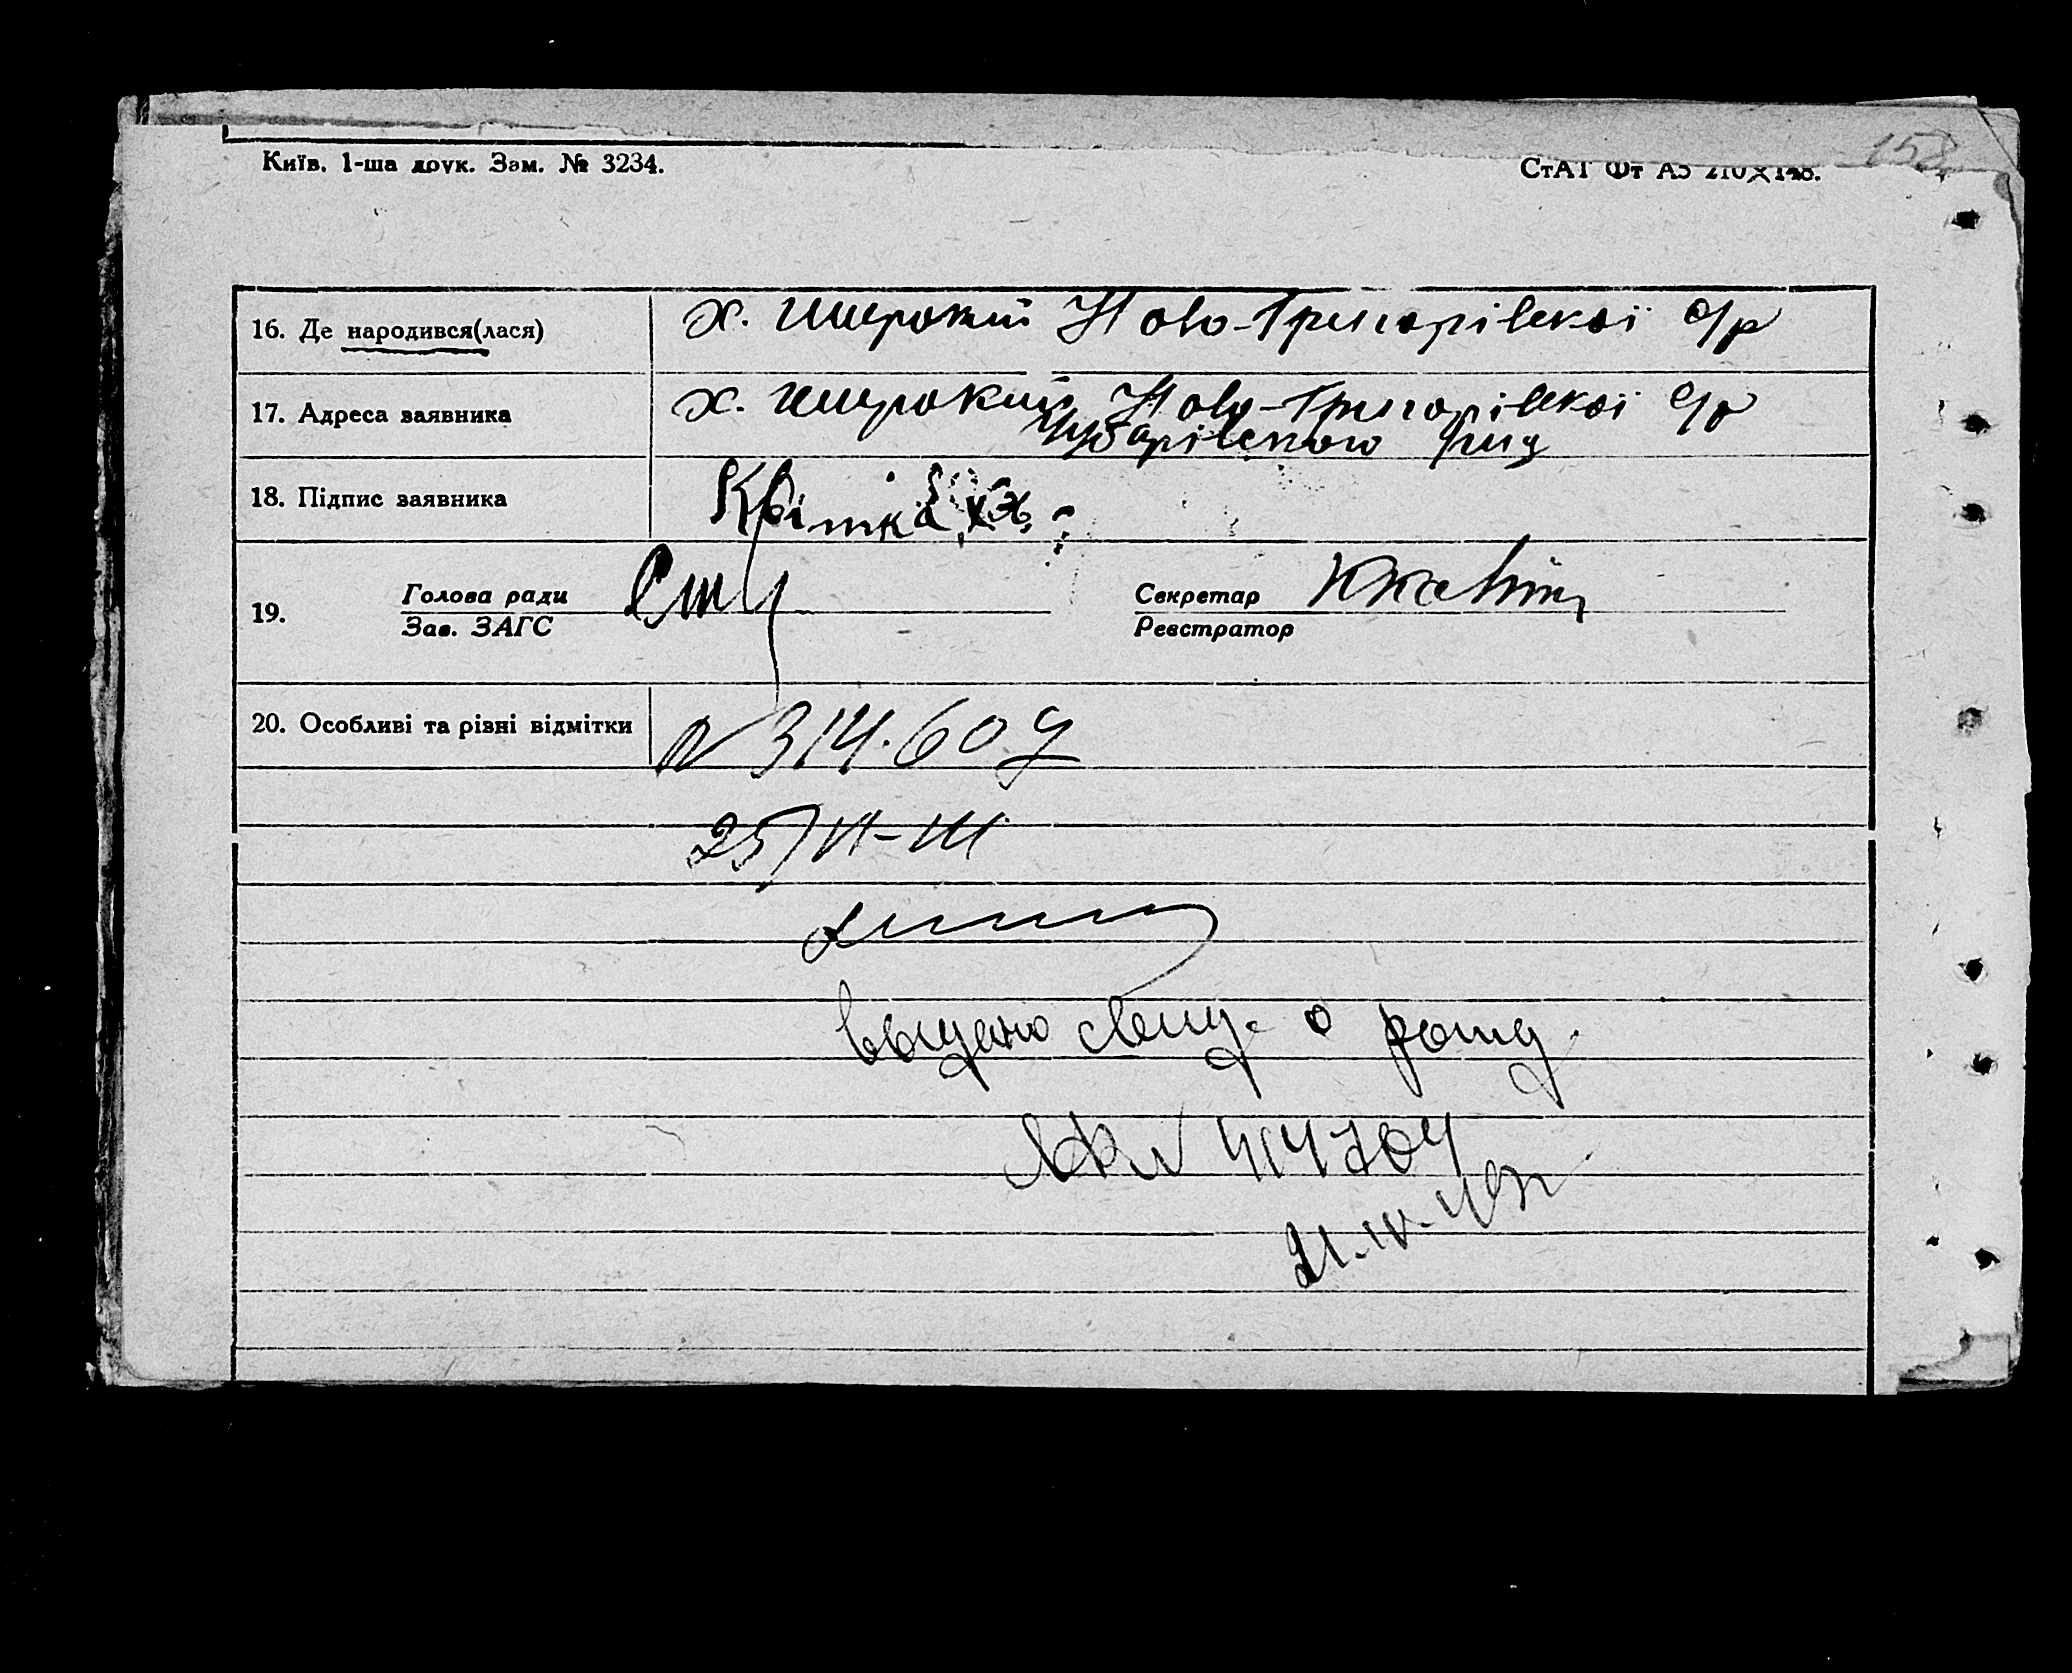 158
Київ. 1-ша друк. Зам. № 3234.
СтАТ Фт А5 210×148.
16. Де народився(лася)
х. Широкий Ново-Григорівскої с/р
17. Адреса заявника
х. Широкий Ново-Григорівскої с/р
Чубарівського р-ну
18. Підпис заявника
Квітка
19.
Голова ради
Зав. ЗАГС
Секретар
Реєстратор
20. Особливі та різні відмітки
№ 314.609
25/VI-
выдано свид. о рожд.
№ 414704
21-IV-